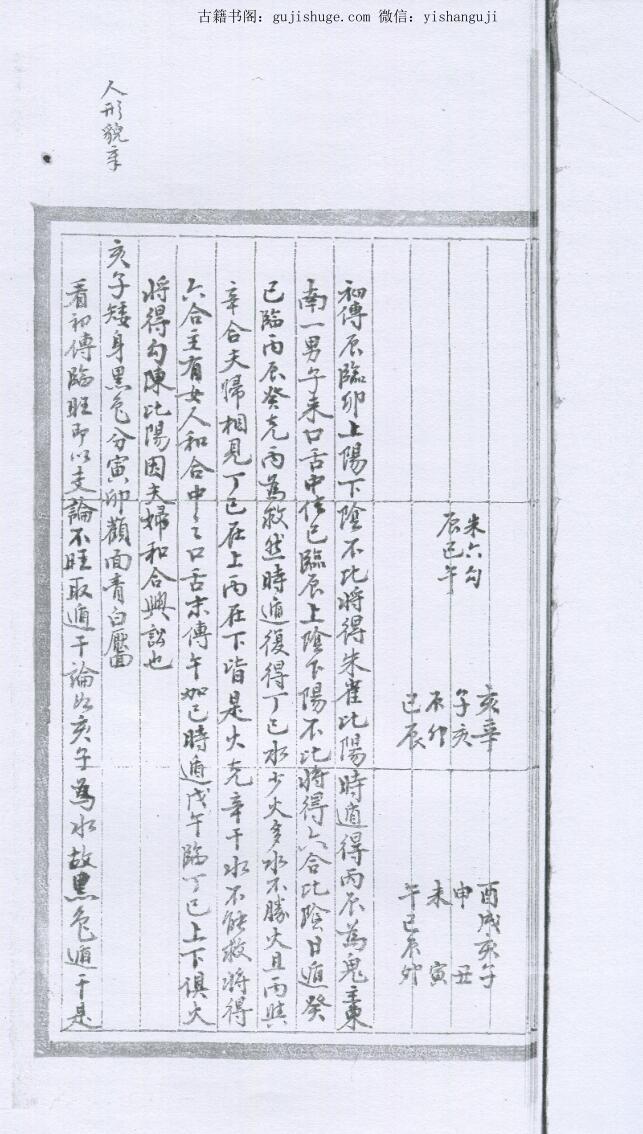 古籍书阁：gujishuge.com 微信：yishanguji
人形貌章
朱六勾
辰巳午
亥辛
子亥
辰卯
巳辰
酉戌亥子
申 丑
未 寅
午巳辰卯
初傳辰臨卯上陽下陰不比將得朱雀比陽時遁得丙辰為鬼主東
南一男子來口舌中傳巳臨辰上陰下陽不比將得六合比陰日遁癸
巳臨丙辰癸克丙為救然時遁復得丁巳水少火多水不勝火且丙與
辛合夫歸相見丁巳在上丙在下皆是火克辛干水不能救將得
六合主有女人和合中之口舌末傳午加巳時遁戊午臨丁巳上下俱火
將得勾陳比陽因夫婦和合興訟也
亥子矮身黑色分寅卯顴面青白靨
看初傳臨旺即以支論不旺取遁干論如亥子為水故黑色遁干是